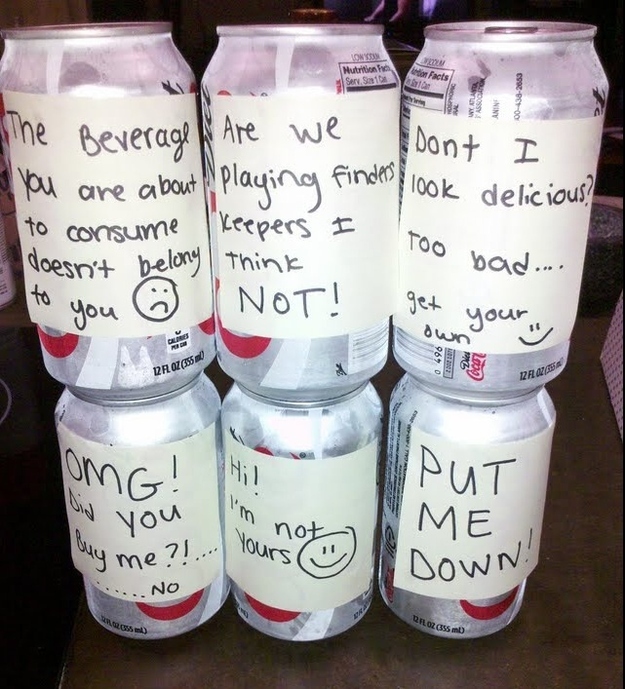 The Beverage
you are about
to consume
doesn't belong
to you
CALORIES
PER CAN
12 FL OZ (355 mL)
LOW SODIUM
Nutrition Facts
Serv. Size 1 Can
Are we
playing finders
keepers I
think
NOT!
Nutrition Facts
Dont I
look delicious?
Too bad....
get your
own
Diet
Coca
12 FL OZ (355 mL)
OMG!
Did you
Buy me?!....
.......NO
12 FL OZ (355 mL)
Hi!
I'm not
yours
PUT
ME
DOWN!
12 FL OZ (355 mL)